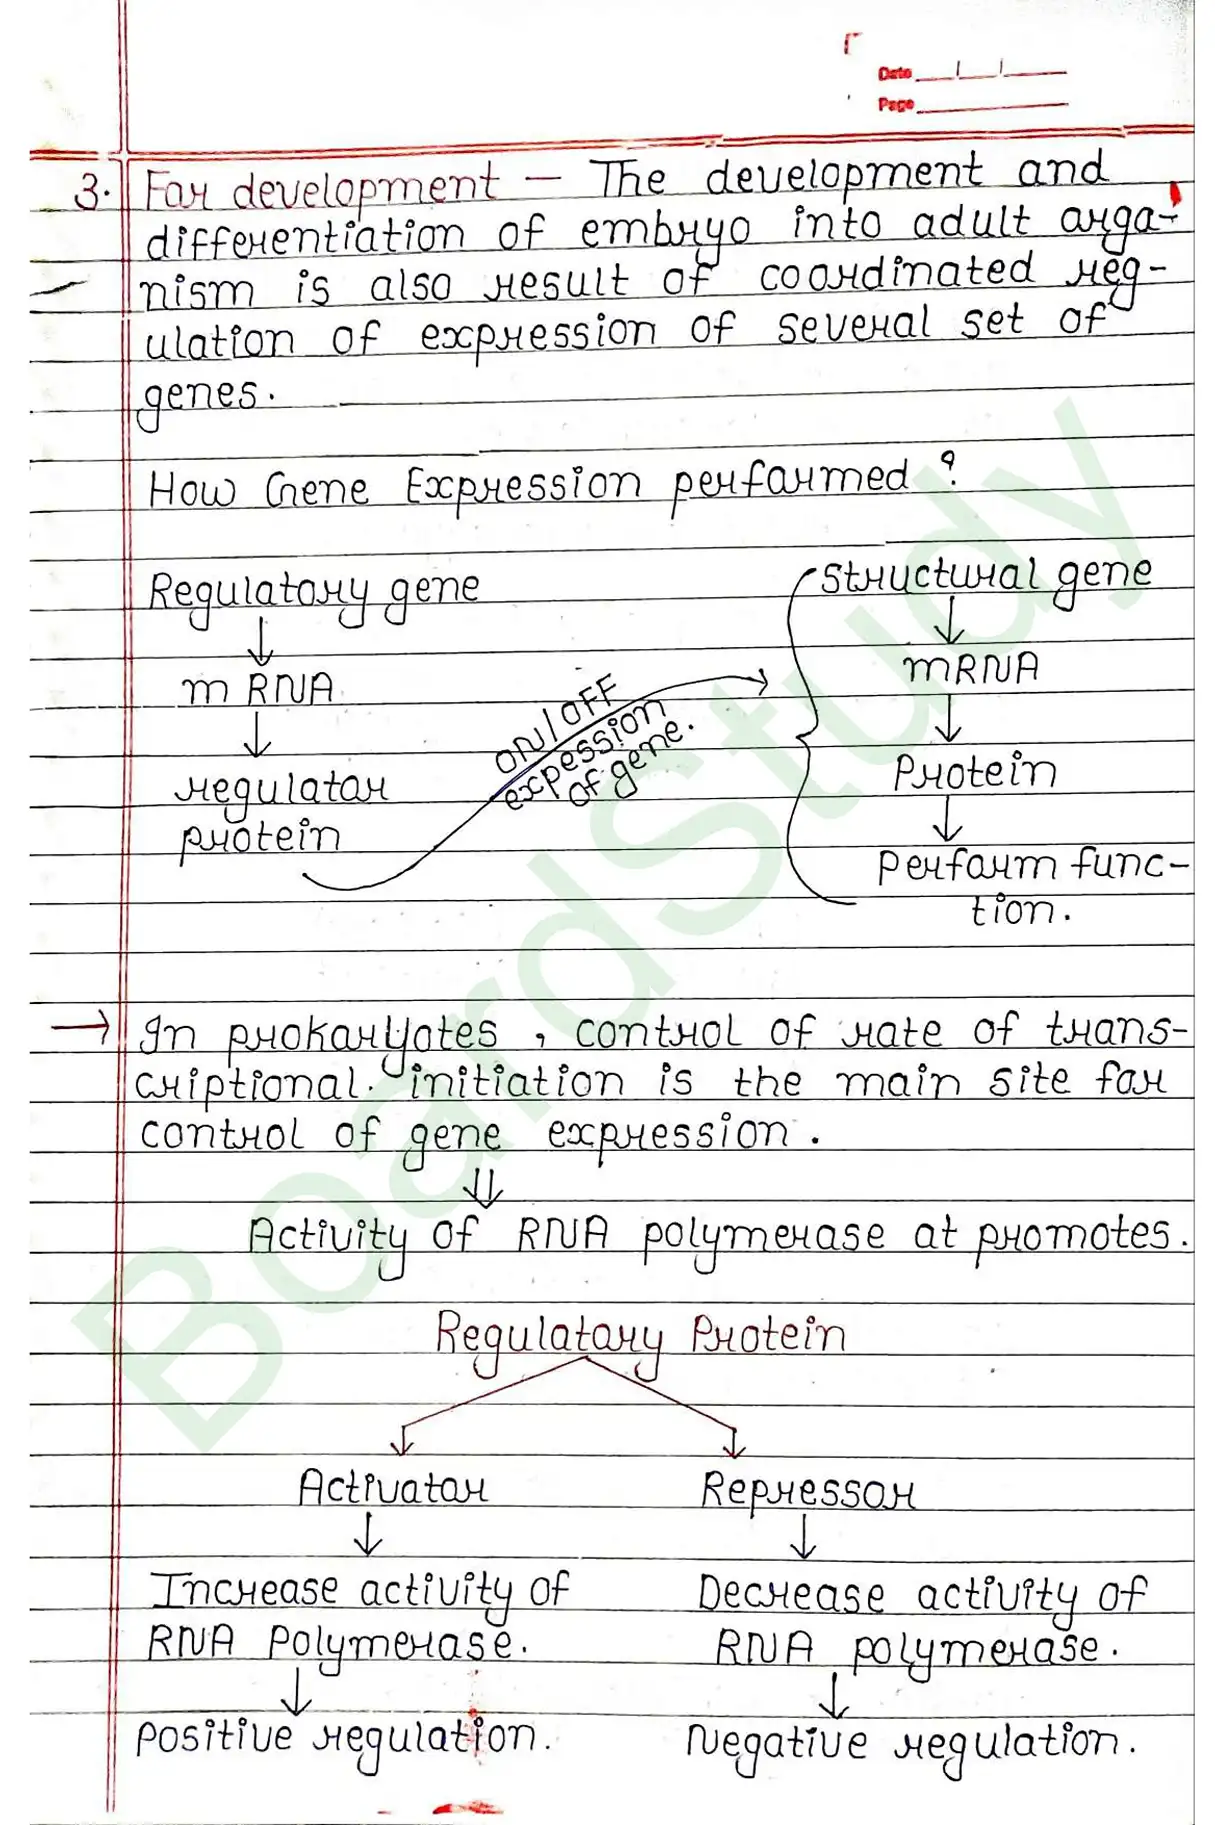 Date
Page
3. For development — The development and
differentiation of embryo into adult orga-
nism is also result of coordinated reg-
ulation of expression of several set of
genes.
How Gene Expression performed ?
Regulatory gene
↓
mRNA
↓
regulator
protein
ON/OFF
expession
of gene.
Structural gene
↓
mRNA
↓
Protein
↓
Perform func-
tion.
→ In prokaryotes, control of rate of trans-
criptional initiation is the main site for
control of gene expression.
⇓
Activity of RNA polymerase at promotes.
Regulatory Protein
Activator Repressor
↓ ↓
Increase activity of Decrease activity of
RNA Polymerase. RNA polymerase.
↓ ↓
Positive regulation. Negative regulation.
BoardStudy